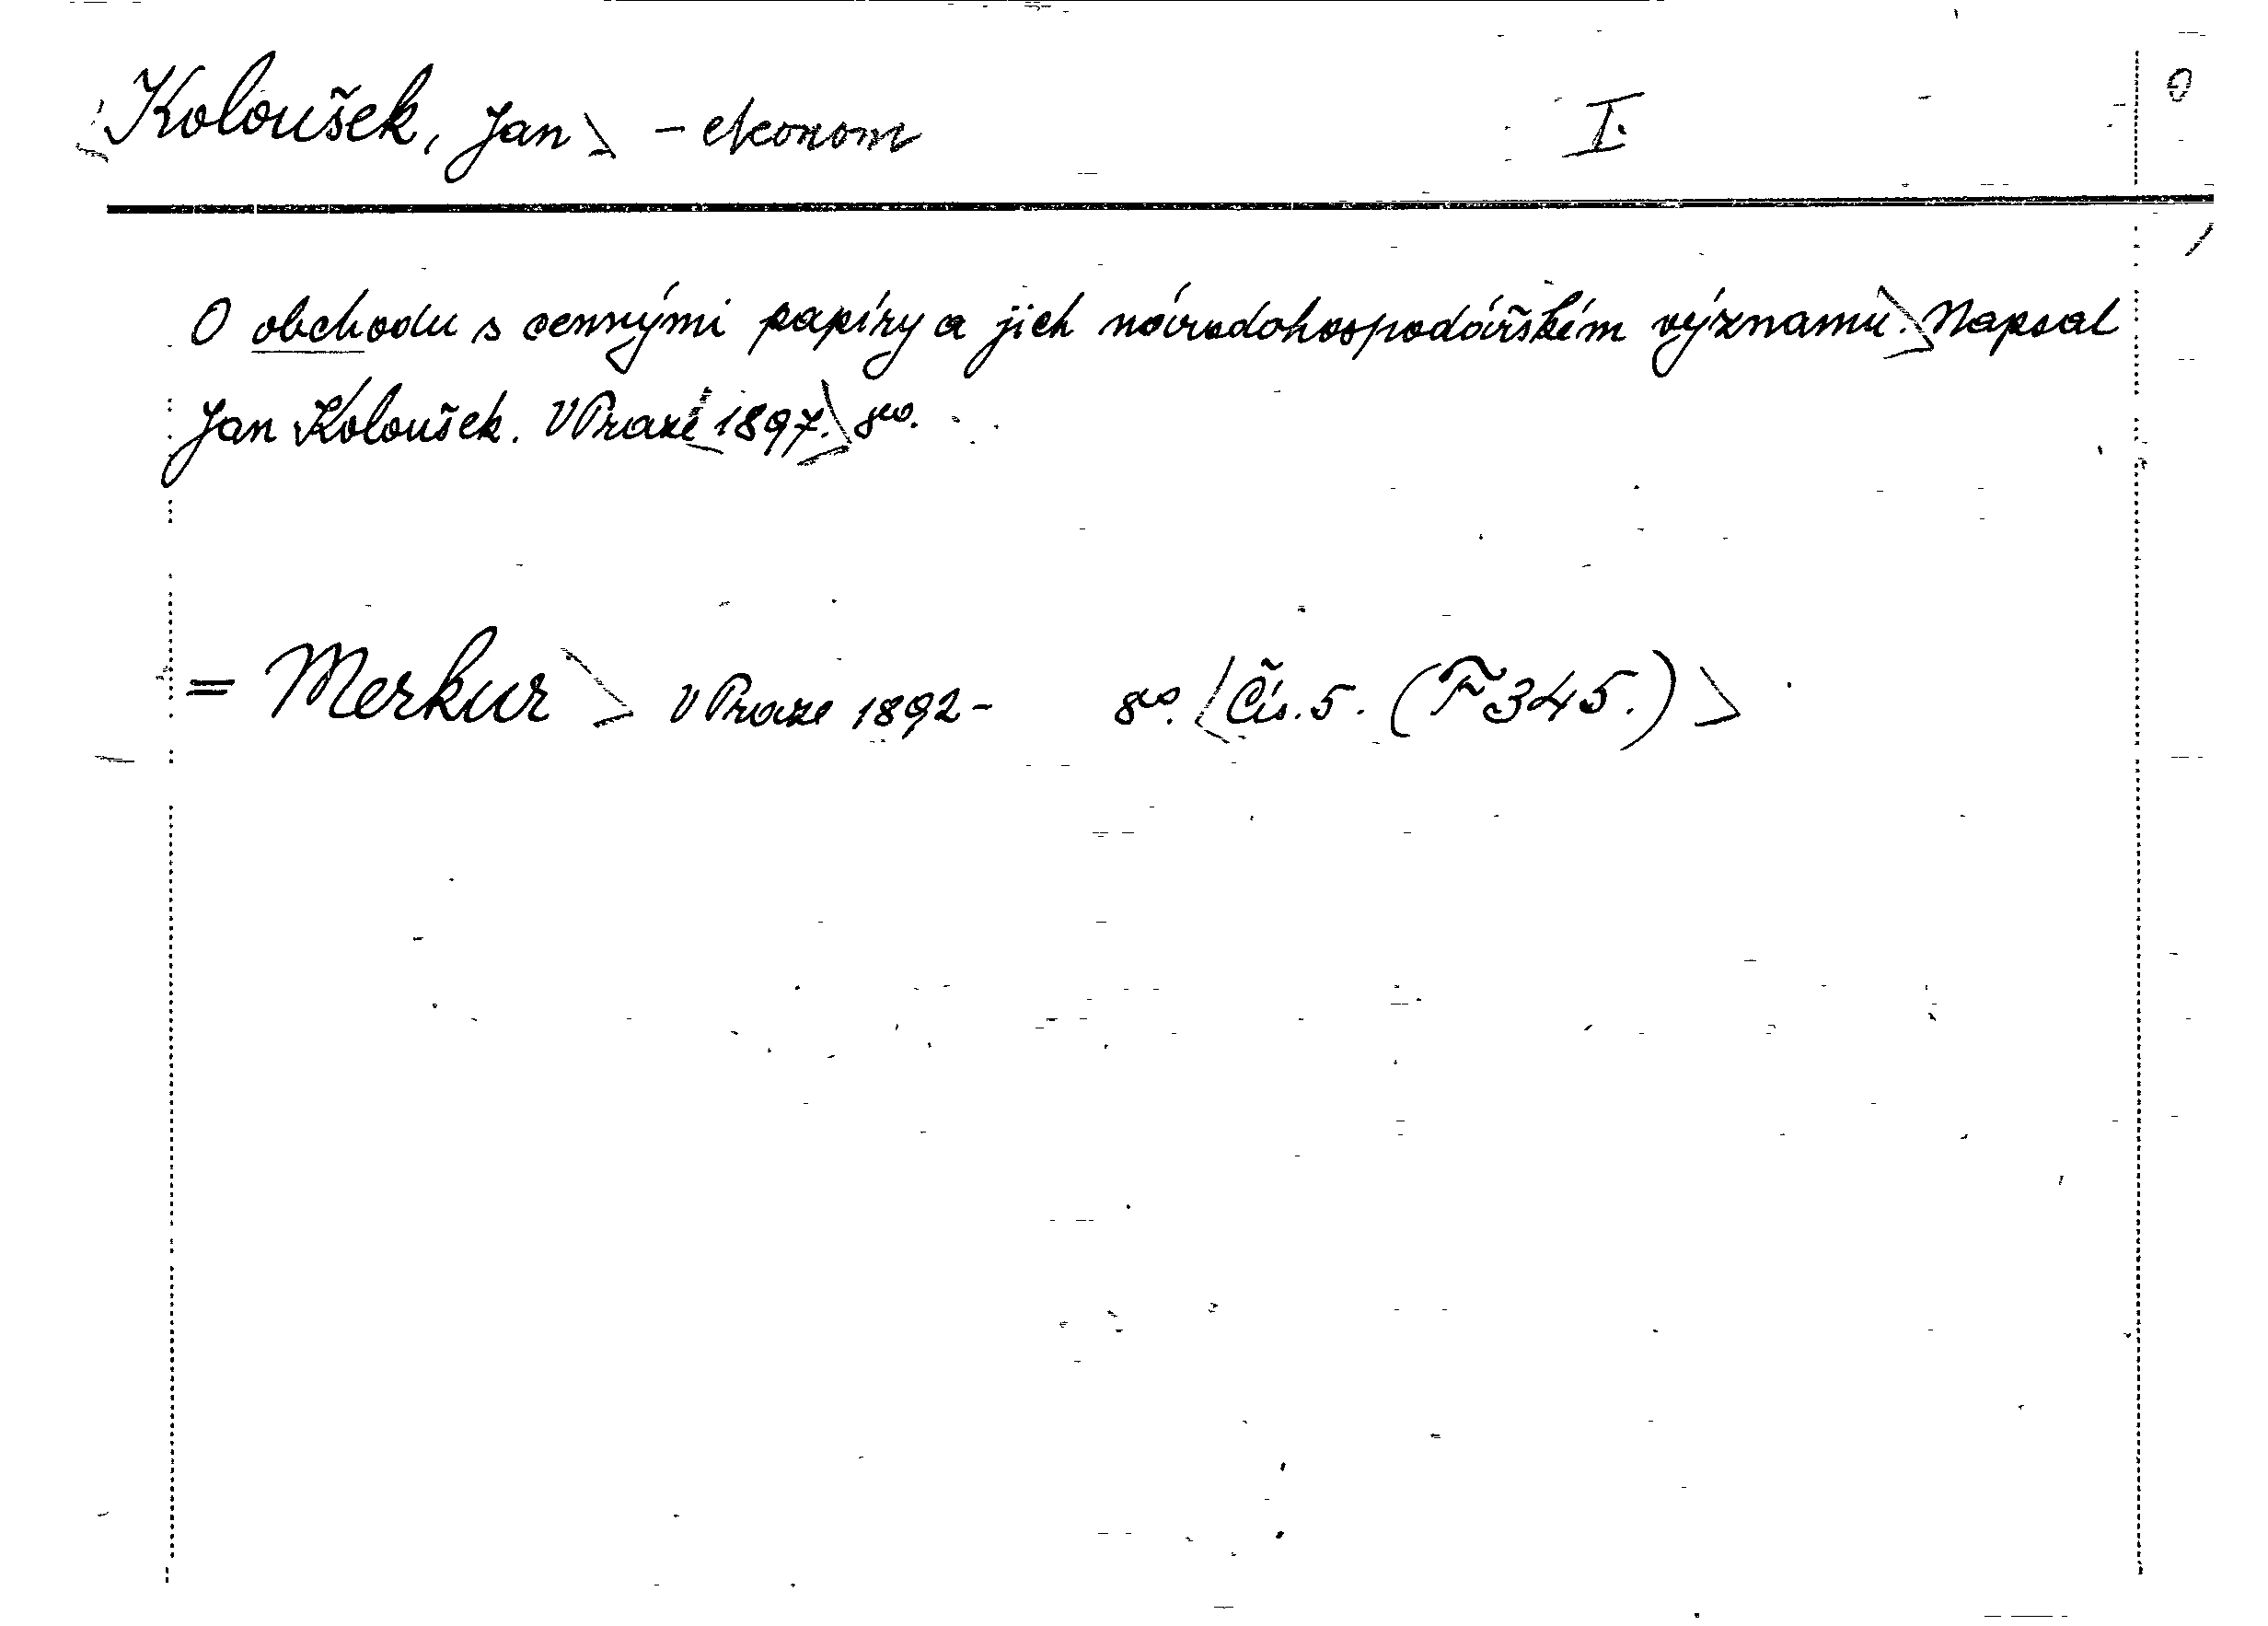 Koloušek, Jan > - ekonom I.
O obchodu s cennými papíry a jich národohospodářském významu. > Napsal
Jan Koloušek. V Praze < 1897. > 8vo.
= Merkur > V Praze 1892- 8vo. < Čís. 5. (F 345.) >